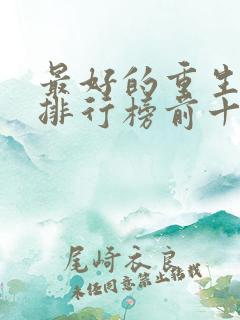 最好的重生
排行榜前十
尾崎衣良
未经同意禁止转载